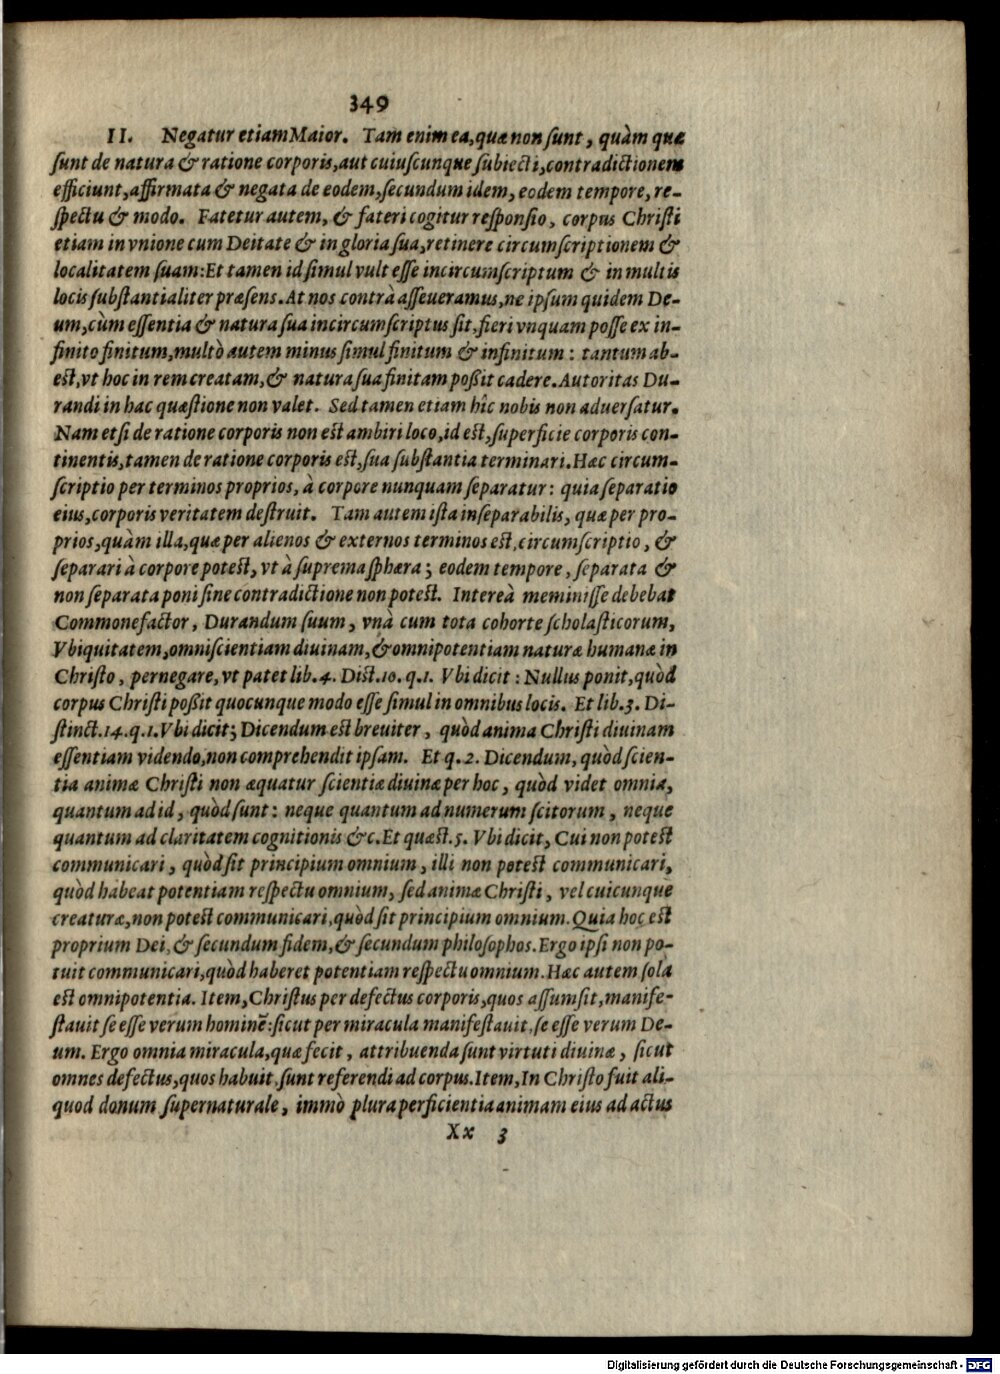 349
II. Negatur etiam Maior. Tam enim ea, quæ non ſunt, quàm quæ
ſunt de natura & ratione corporis, aut cuiuſcunque ſubiecti, contradictionem
efficiunt, affirmata & negata de eodem, ſecundum idem, eodem tempore, re-
ſpectu & modo. Fatetur autem, & fateri cogitur reſponſio, corpus Chriſti
etiam in vnione cum Deitate & in gloria ſua, retinere circumſcriptionem &
localitatem ſuam: Et tamen id ſimul vult eſſe incircumſcriptum & in multis
locis ſubſtantialiter præſens. At nos contrà aſſeueramus, ne ipſum quidem De-
um, cùm eſſentia & natura ſua incircumſcriptus ſit, fieri vnquam poſſe ex in-
finito finitum, multò autem minus ſimul finitum & infinitum: tantum ab-
eſt, vt hoc in rem creatam, & natura ſua finitam poßit cadere. Autoritas Du-
randi in hac quæſtione non valet. Sed tamen etiam hîc nobis non aduerſatur.
Nam etſi de ratione corporis non eſt ambiri loco, id eſt, ſuperficie corporis con-
tinentis, tamen de ratione corporis eſt, ſua ſubſtantia terminari. Hæc circum-
ſcriptio per terminos proprios, à corpore nunquam ſeparatur: quia ſeparatio
eius, corporis veritatem deſtruit. Tam autem iſta inſeparabilis, quæ per pro-
prios, quàm illa, quæ per alienos & externos terminos eſt, circumſcriptio, &
ſeparari à corpore poteſt, vt à ſuprema ſphæra; eodem tempore, ſeparata &
non ſeparata poni ſine contradictione non poteſt. Intereà meminiſſe debebat
Commonefactor, Durandum ſuum, vnà cum tota cohorte ſcholaſticorum,
Vbiquitatem, omniſcientiam diuinam, & omnipotentiam naturæ humanæ in
Chriſto, pernegare, vt patet lib. 4. Diſt. 10. q. 1. Vbi dicit: Nullus ponit, quòd
corpus Chriſti poßit quocunque modo eſſe ſimul in omnibus locis. Et lib. 3. Di-
ſtinct. 14. q. 1. Vbi dicit; Dicendum eſt breuiter, quòd anima Chriſti diuinam
eſſentiam videndo, non comprehendit ipſam. Et q. 2. Dicendum, quòd ſcien-
tia animæ Chriſti non æquatur ſcientiæ diuinæ per hoc, quòd videt omnia,
quantum ad id, quòd ſunt: neque quantum ad numerum ſcitorum, neque
quantum ad claritatem cognitionis &c. Et quæſt. 5. Vbi dicit, Cui non poteſt
communicari, quòd ſit principium omnium, illi non poteſt communicari,
quòd habeat potentiam reſpectu omnium, ſed animæ Chriſti, vel cuicunque
creaturæ, non poteſt communicari, quòd ſit principium omnium. Quia hoc eſt
proprium Dei, & ſecundum fidem, & ſecundum philoſophos. Ergo ipſi non po-
tuit communicari, quòd haberet potentiam reſpectu omnium. Hæc autem ſola
eſt omnipotentia. Item, Chriſtus per defectus corporis, quos aſſumſit, manife-
ſtauit ſe eſſe verum hominē: ſicut per miracula manifeſtauit, ſe eſſe verum De-
um. Ergo omnia miracula, quæ fecit, attribuenda ſunt virtuti diuinæ, ſicut
omnes defectus, quos habuit, ſunt referendi ad corpus. Item, In Chriſto fuit ali-
quod donum ſupernaturale, immò plura perficientia animam eius ad actus
Xx 3
Digitalisierung gefördert durch die Deutsche Forschungsgemeinschaft - DFG